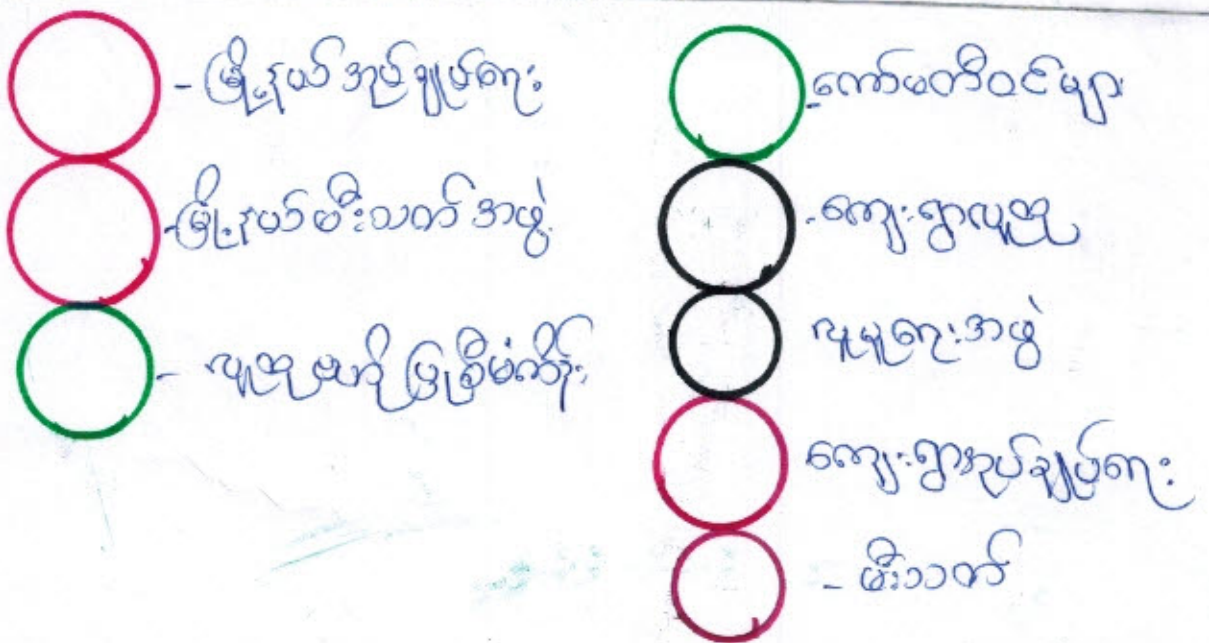 - မြို့နယ်အုပ်ချုပ်ရေး
- မြို့နယ်မီးသတ်အဖွဲ့
- လူထုဗဟိုပြုစီမံကိန်း
- ကော်မတီဝင်များ
- ကျေးရွာလူထု
လူမှုရေးအဖွဲ့
ကျေးရွာအုပ်ချုပ်ရေး
- မီးသတ်